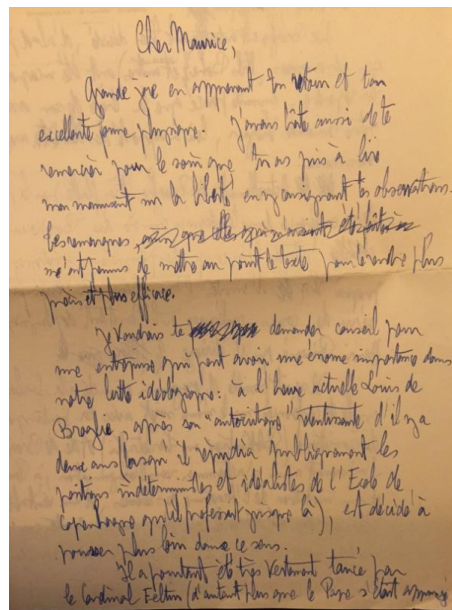 Cher Maurice,
Grande joie en apprenant ton retour et ton
excellente forme physique. J'avais hâte aussi de te
remercier pour le soin que tu as pris à lire
mon manuscrit sur la liberté en y consignant tes observations.
Ces remarques,
m'ont permis de mettre au point le texte, pour le rendre plus
précis et plus efficace.
Je voudrais te demander conseil pour
une entreprise qui peut avoir une énorme importance dans
notre lutte idéologique : à l'heure actuelle Louis de
Broglie, après son "autocritique" retentissante d'il y a
deux ans (lorsqu'il répudia publiquement les
positions indéterministes et idéalistes de l'Ecole de
Copenhague qu'il professait jusque là), est décidé à
pousser plus loin dans ce sens.
Il a pourtant été très vertement tancé par
le Cardinal Feltin (d'autant plus que le Pape s'était appuyé